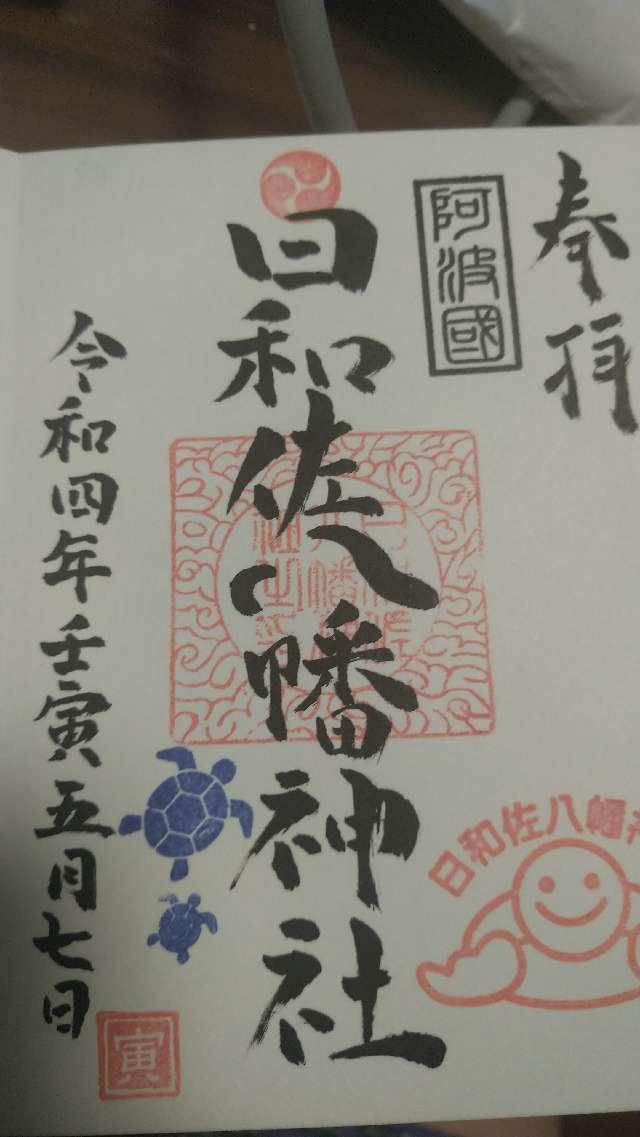 奉拝
阿波國
日和佐八幡神社
日和佐八幡
令和四年壬寅五月七日
寅